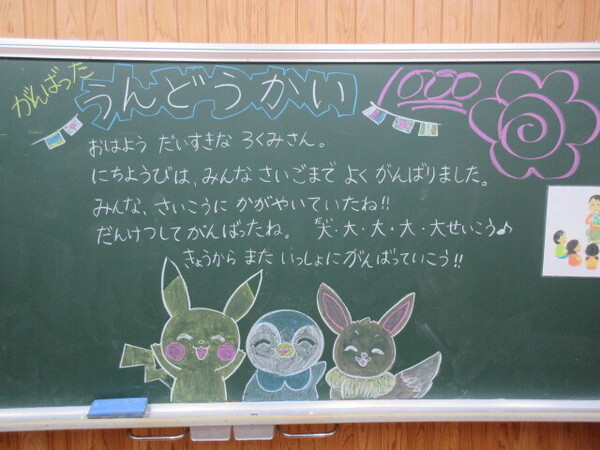 がんばった
うんどうかい
1000
おはよう だいすきな ろくみさん。
にちようびは、みんな さいごまで よく がんばりました。
みんな、さいこうに かがやいていたね!!
だんけつして がんばったね。 大・大・大・大・大せいこう♪
だい
きょうから また いっしょに がんばっていこう!!